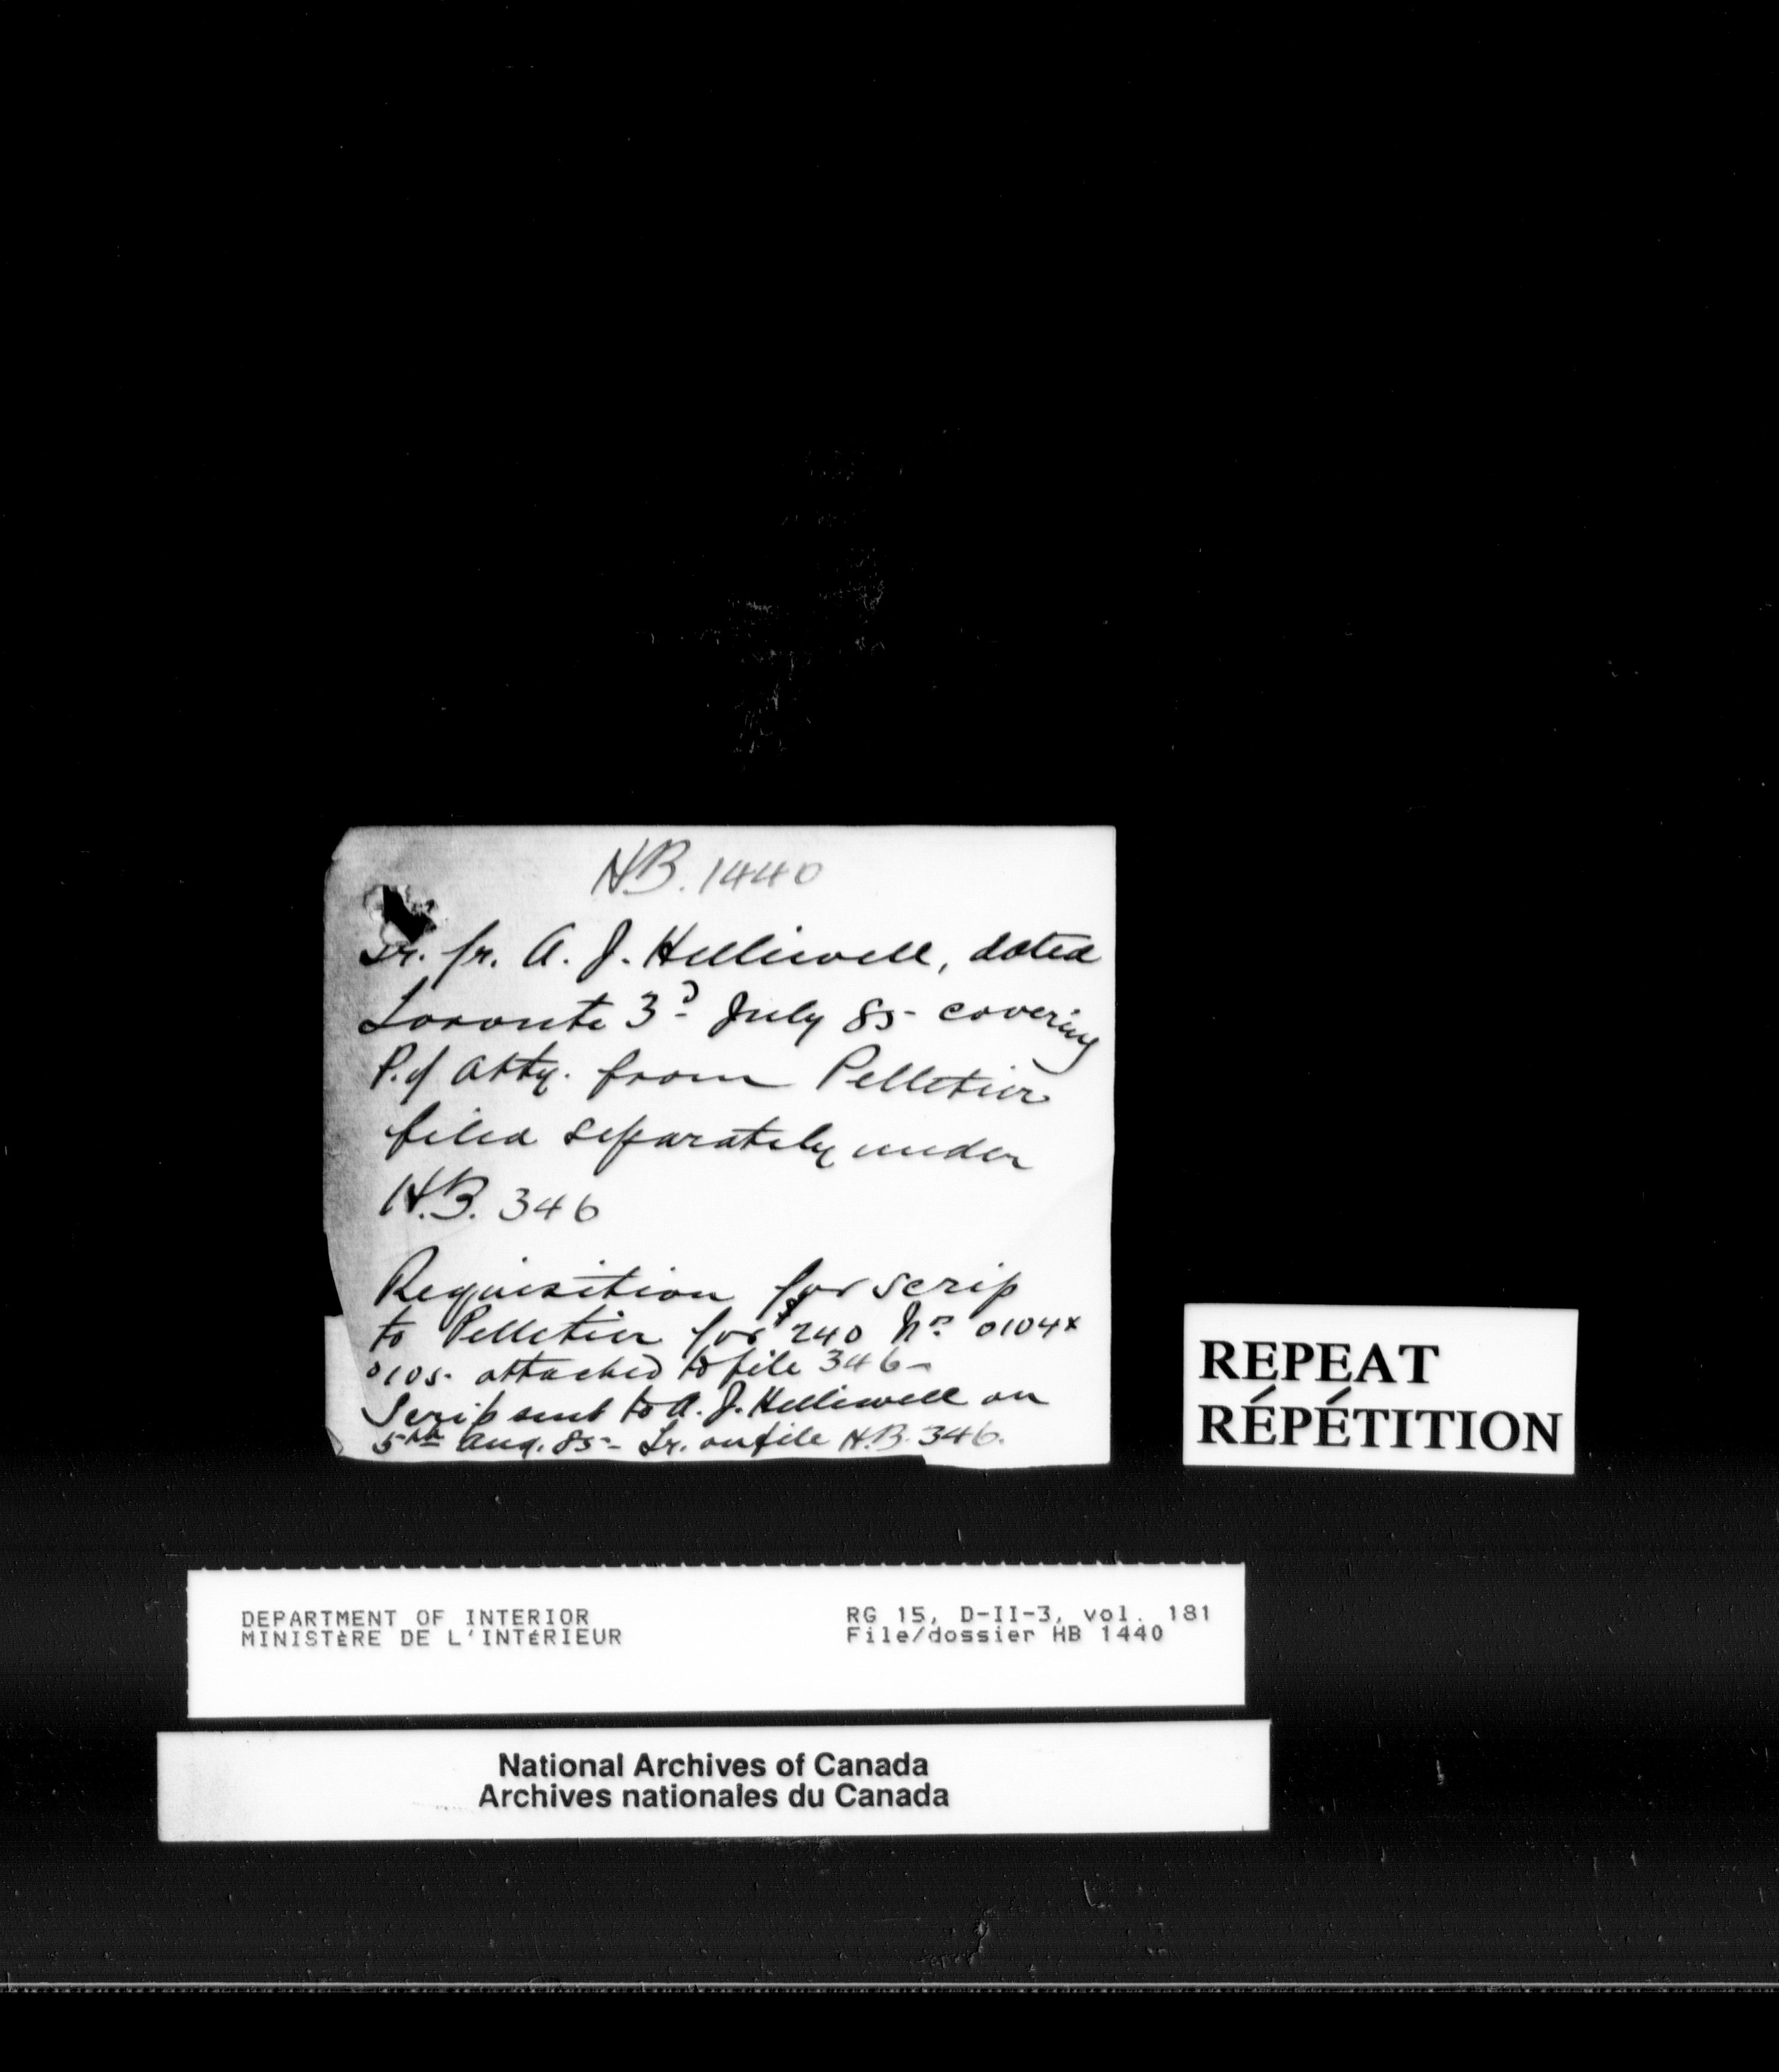 H.B. 1440
Lr. fr. A. J. Helliwell, dated
Toronto 3d July 85 - covering
P. of Atty. from Pelletier
filed separately under
H.B. 346
Requisition for scrip
to Pelletier for $240 No. 0104 x
0105. attached to file 346 -
Scrip sent to A. J. Helliwell on
5th Aug. 85 - Lr. on file H.B. 346.
REPEAT
RÉPÉTITION
DEPARTMENT OF INTERIOR
MINISTÈRE DE L'INTÉRIEUR
RG 15, D-II-3, vol. 181
File/dossier HB 1440
National Archives of Canada
Archives nationales du Canada